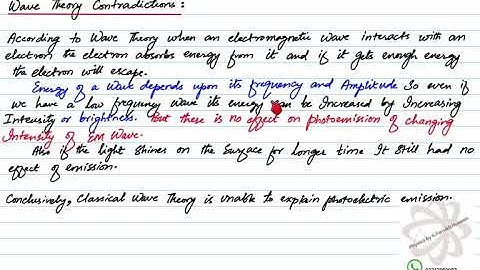 Wave Theory Contradictions:
According to Wave Theory when an electromagnetic wave interacts with an
electron the electron absorbs energy from it and if it gets enough energy
the electron will escape.
Energy of a wave depends upon its frequency and Amplitude So even if
we have a low frequency wave its energy can be Increased by Increasing
Intensity or brightness. But there is no effect on photoemission of changing
Intensity of EM Wave.
Also if the light Shines on the Surface for Longer time It still had no
effect of emission.
Conclusively, Classical Wave Theory is unable to explain photoelectric emission.